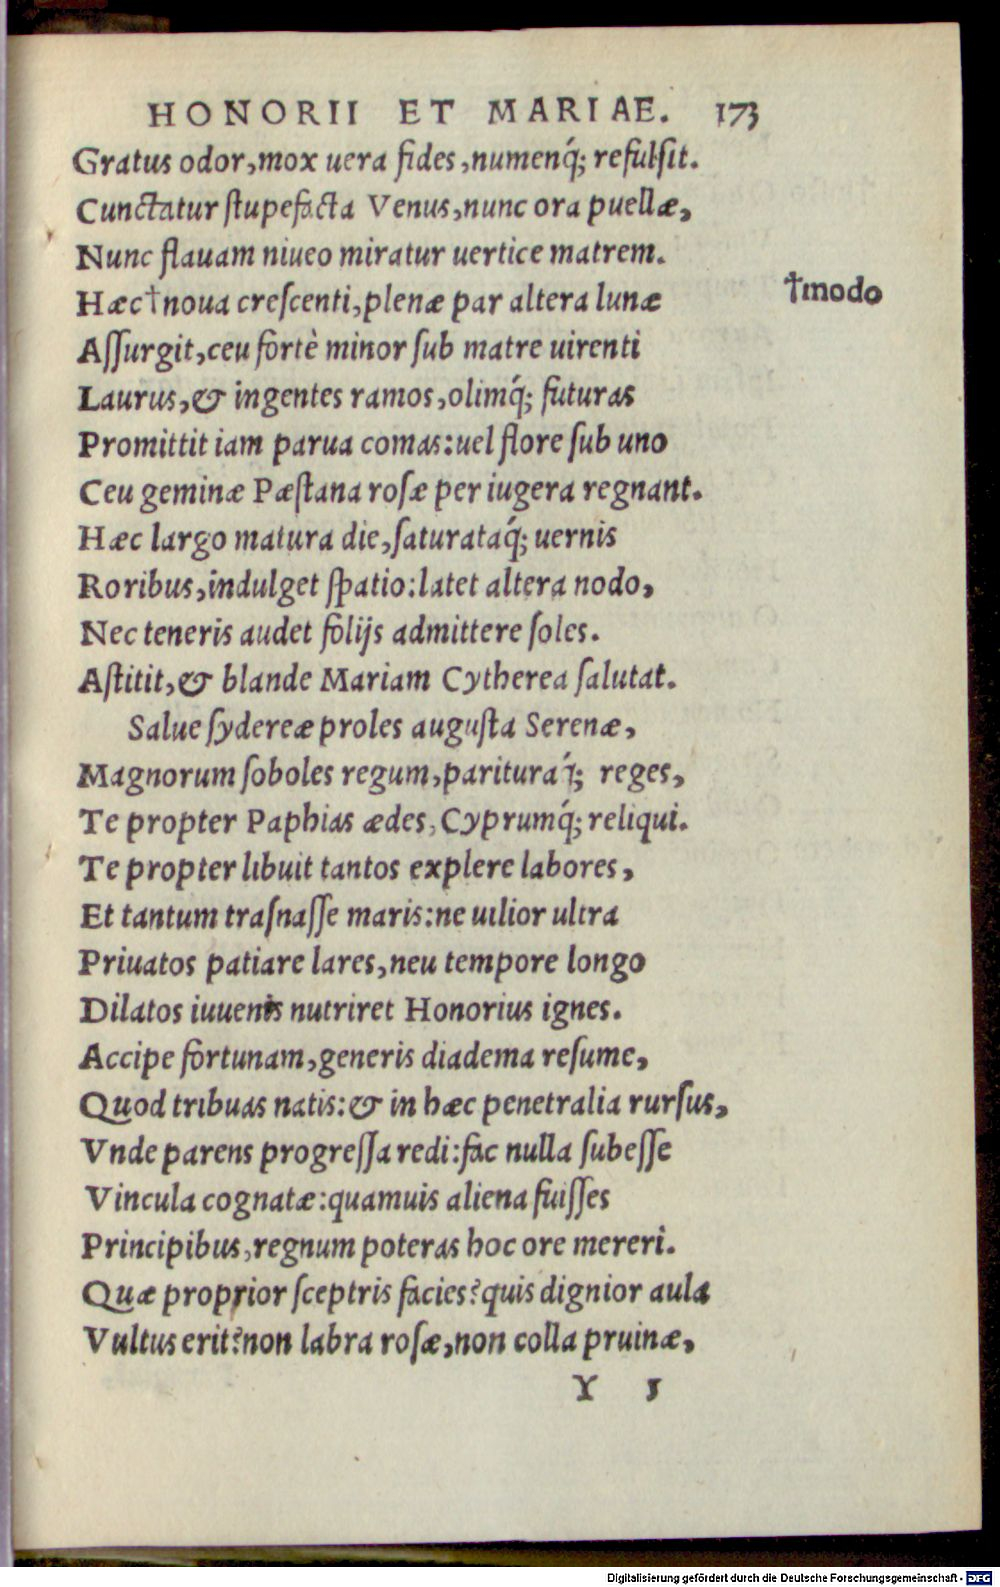 HONORII ET MARIAE. 173
Gratus odor, mox uera fides, numenq́; refulsit.
Cunctatur stupefacta Venus, nunc ora puellæ,
Nunc flauam niueo miratur uertice matrem.
Hæc†noua crescenti, plenæ par altera lunæ
†modo
Assurgit, ceu fortè minor sub matre uirenti
Laurus, & ingentes ramos, olimq́; futuras
Promittit iam parua comas: uel flore sub uno
Ceu geminæ Pæstana rosæ per iugera regnant.
Hæc largo matura die, saturataq́; uernis
Roribus, indulget spatio: latet altera nodo,
Nec teneris audet folijs admittere soles.
Astitit, & blande Mariam Cytherea salutat.
Salue sydereæ proles augusta Serenæ,
Magnorum soboles regum, parituraq́; reges,
Te propter Paphias ædes, Cyprumq́; reliqui.
Te propter libuit tantos explere labores,
Et tantum trasnasse maris: ne uilior ultra
Priuatos patiare lares, neu tempore longo
Dilatos iuuenis nutriret Honorius ignes.
Accipe fortunam, generis diadema resume,
Quod tribuas natis: & in hæc penetralia rursus,
Vnde parens progressa redi: fac nulla subesse
Vincula cognatæ: quamuis aliena fuisses
Principibus, regnum poteras hoc ore mereri.
Quæ proprior sceptris facies? quis dignior aula
Vultus erit? non labra rosæ, non colla pruinæ,
Y 5
Digitalisierung gefördert durch die Deutsche Forschungsgemeinschaft - DFG